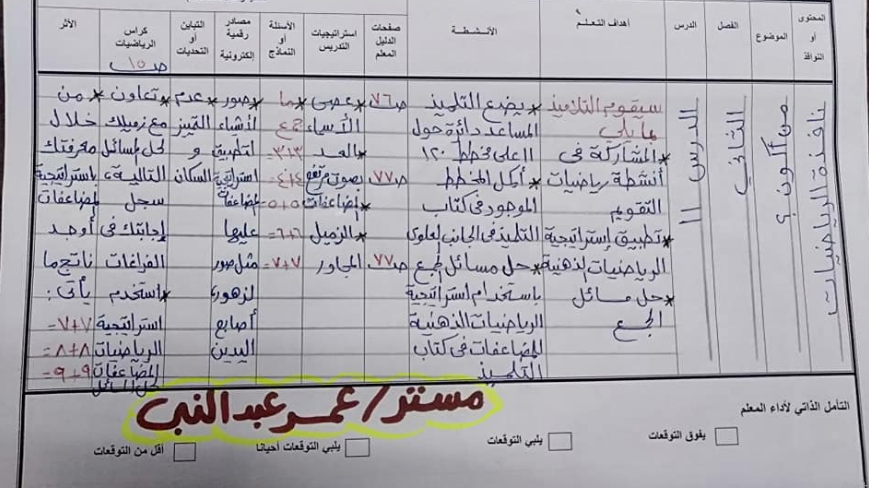 المحتوى أو النوافذ
الموضوع
الفصل
الدرس
أهداف التعلم
الأنشطة
صفحات الدليل المعلم
استراتيجيات التدريس
الأسئلة أو النماذج
مصادر رقمية إلكترونية
التباين أو التحديات
كراس الرياضيات
ص ١٥
الأثر
نافذة الرياضيات
من أكون ؟
الثاني
الدرس ١١
سيقوم التلاميذ
بما يلي
* المشاركة في
أنشطة رياضيات
التقويم
* تطبيق إستراتيجية
الرياضيات الذهنية
* حل مسائل
الجمع
* يضع التلميذ
المساعد دائرة حول
١١ على مخطط ١٢٠
* أكمل المخطط
الموجود في كتاب
التلميذ في الجانب العلوى
* حل مسائل الجمع
باستخدام استراتيجية
الرياضيات الذهنية
المضاعفات في كتاب
التلميذ
ص ٧٦
ص ٧٧
ص ٧٧
* عصى
الأسماء
* العد
بصوت مرتفع
* المضاعفات
* الزميل
المجاور
* ما
جمع
٣+٣=
٤+٤=
٥+٥=
٦+٦=
٧+٧=
* صور
لأشياء
لتطبيق
استراتيجية
المضاعفات
عليها
مثل صور
لزهور،
أصابع
اليدين
* عدم
التميز
و
السكان
* تعاون
مع زميلك
لحل المسائل
التالية،
سجل
إجابتك فى
الفراغات
* استخدم
استراتيجية
الرياضيات
المضاعفات
لحل المسائل
* من
خلال
معرفتك
باستراتيجية
المضاعفات
أوجد
ناتج ما
يأتى:
٧+٧=
٨+٨=
٩+٩=
التأمل الذاتي لأداء المعلم
مستر/ عمر عبد النبى
يفوق التوقعات
يلبي التوقعات
يلبي التوقعات أحيانا
أقل من التوقعات